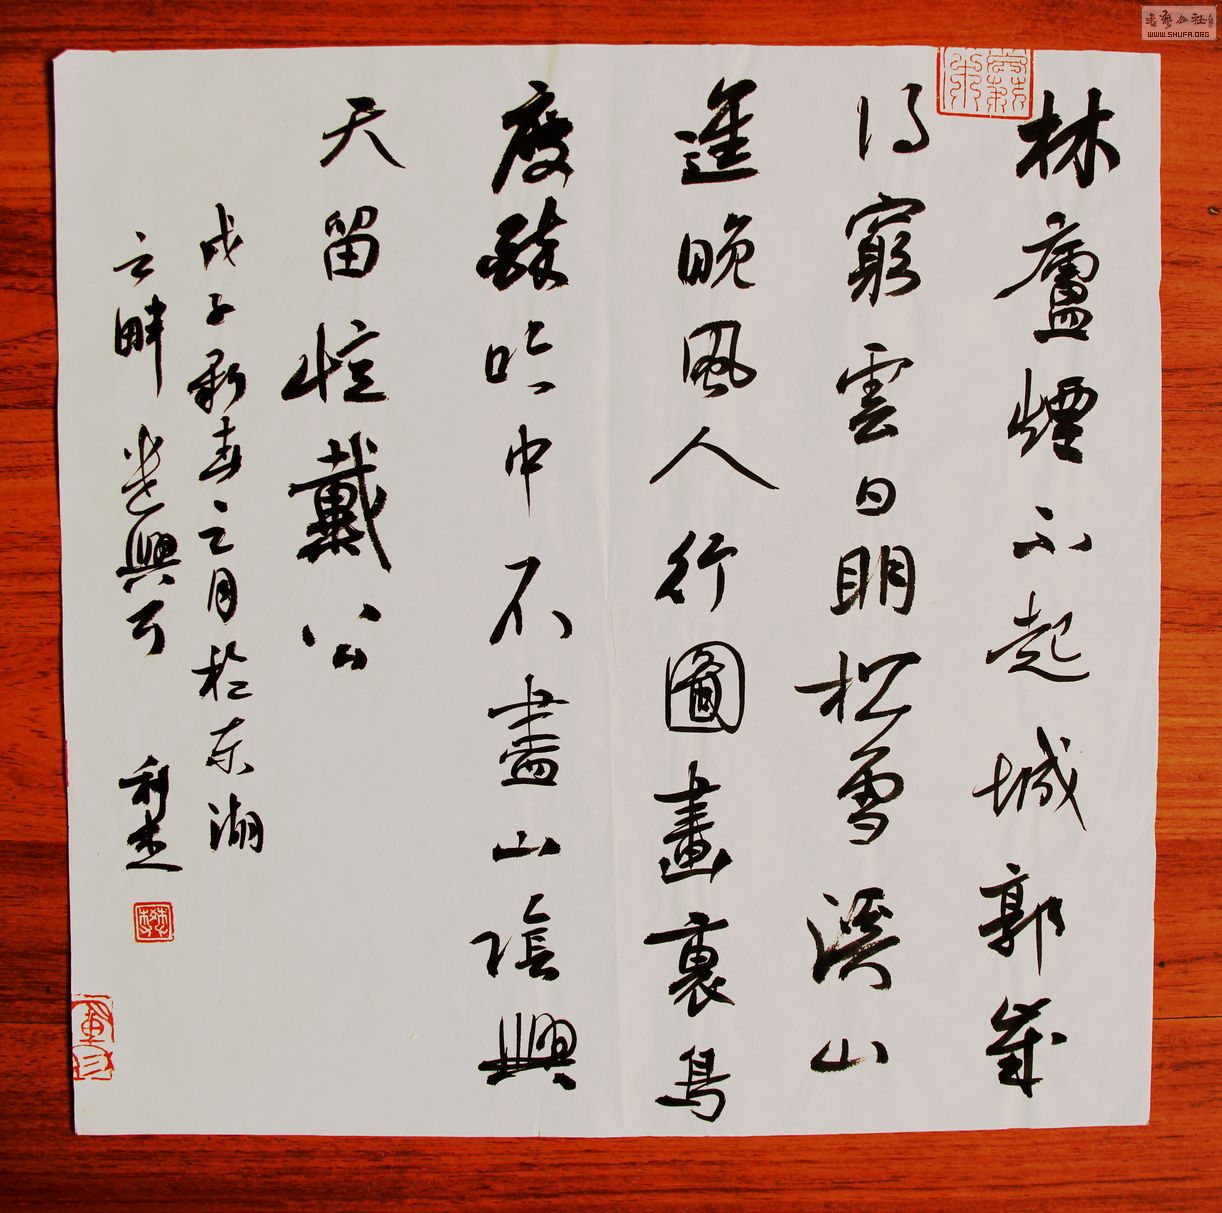 林廬煙不起城郭歲
将窮雲日明松雪溪山
進晚風人行圖畫裏鳥
度醉吟中不盡山陰興
天留憶戴公
戊子新春之月於东湖
之畔 遣興
書藝公社
WWW.SHUFA.ORG